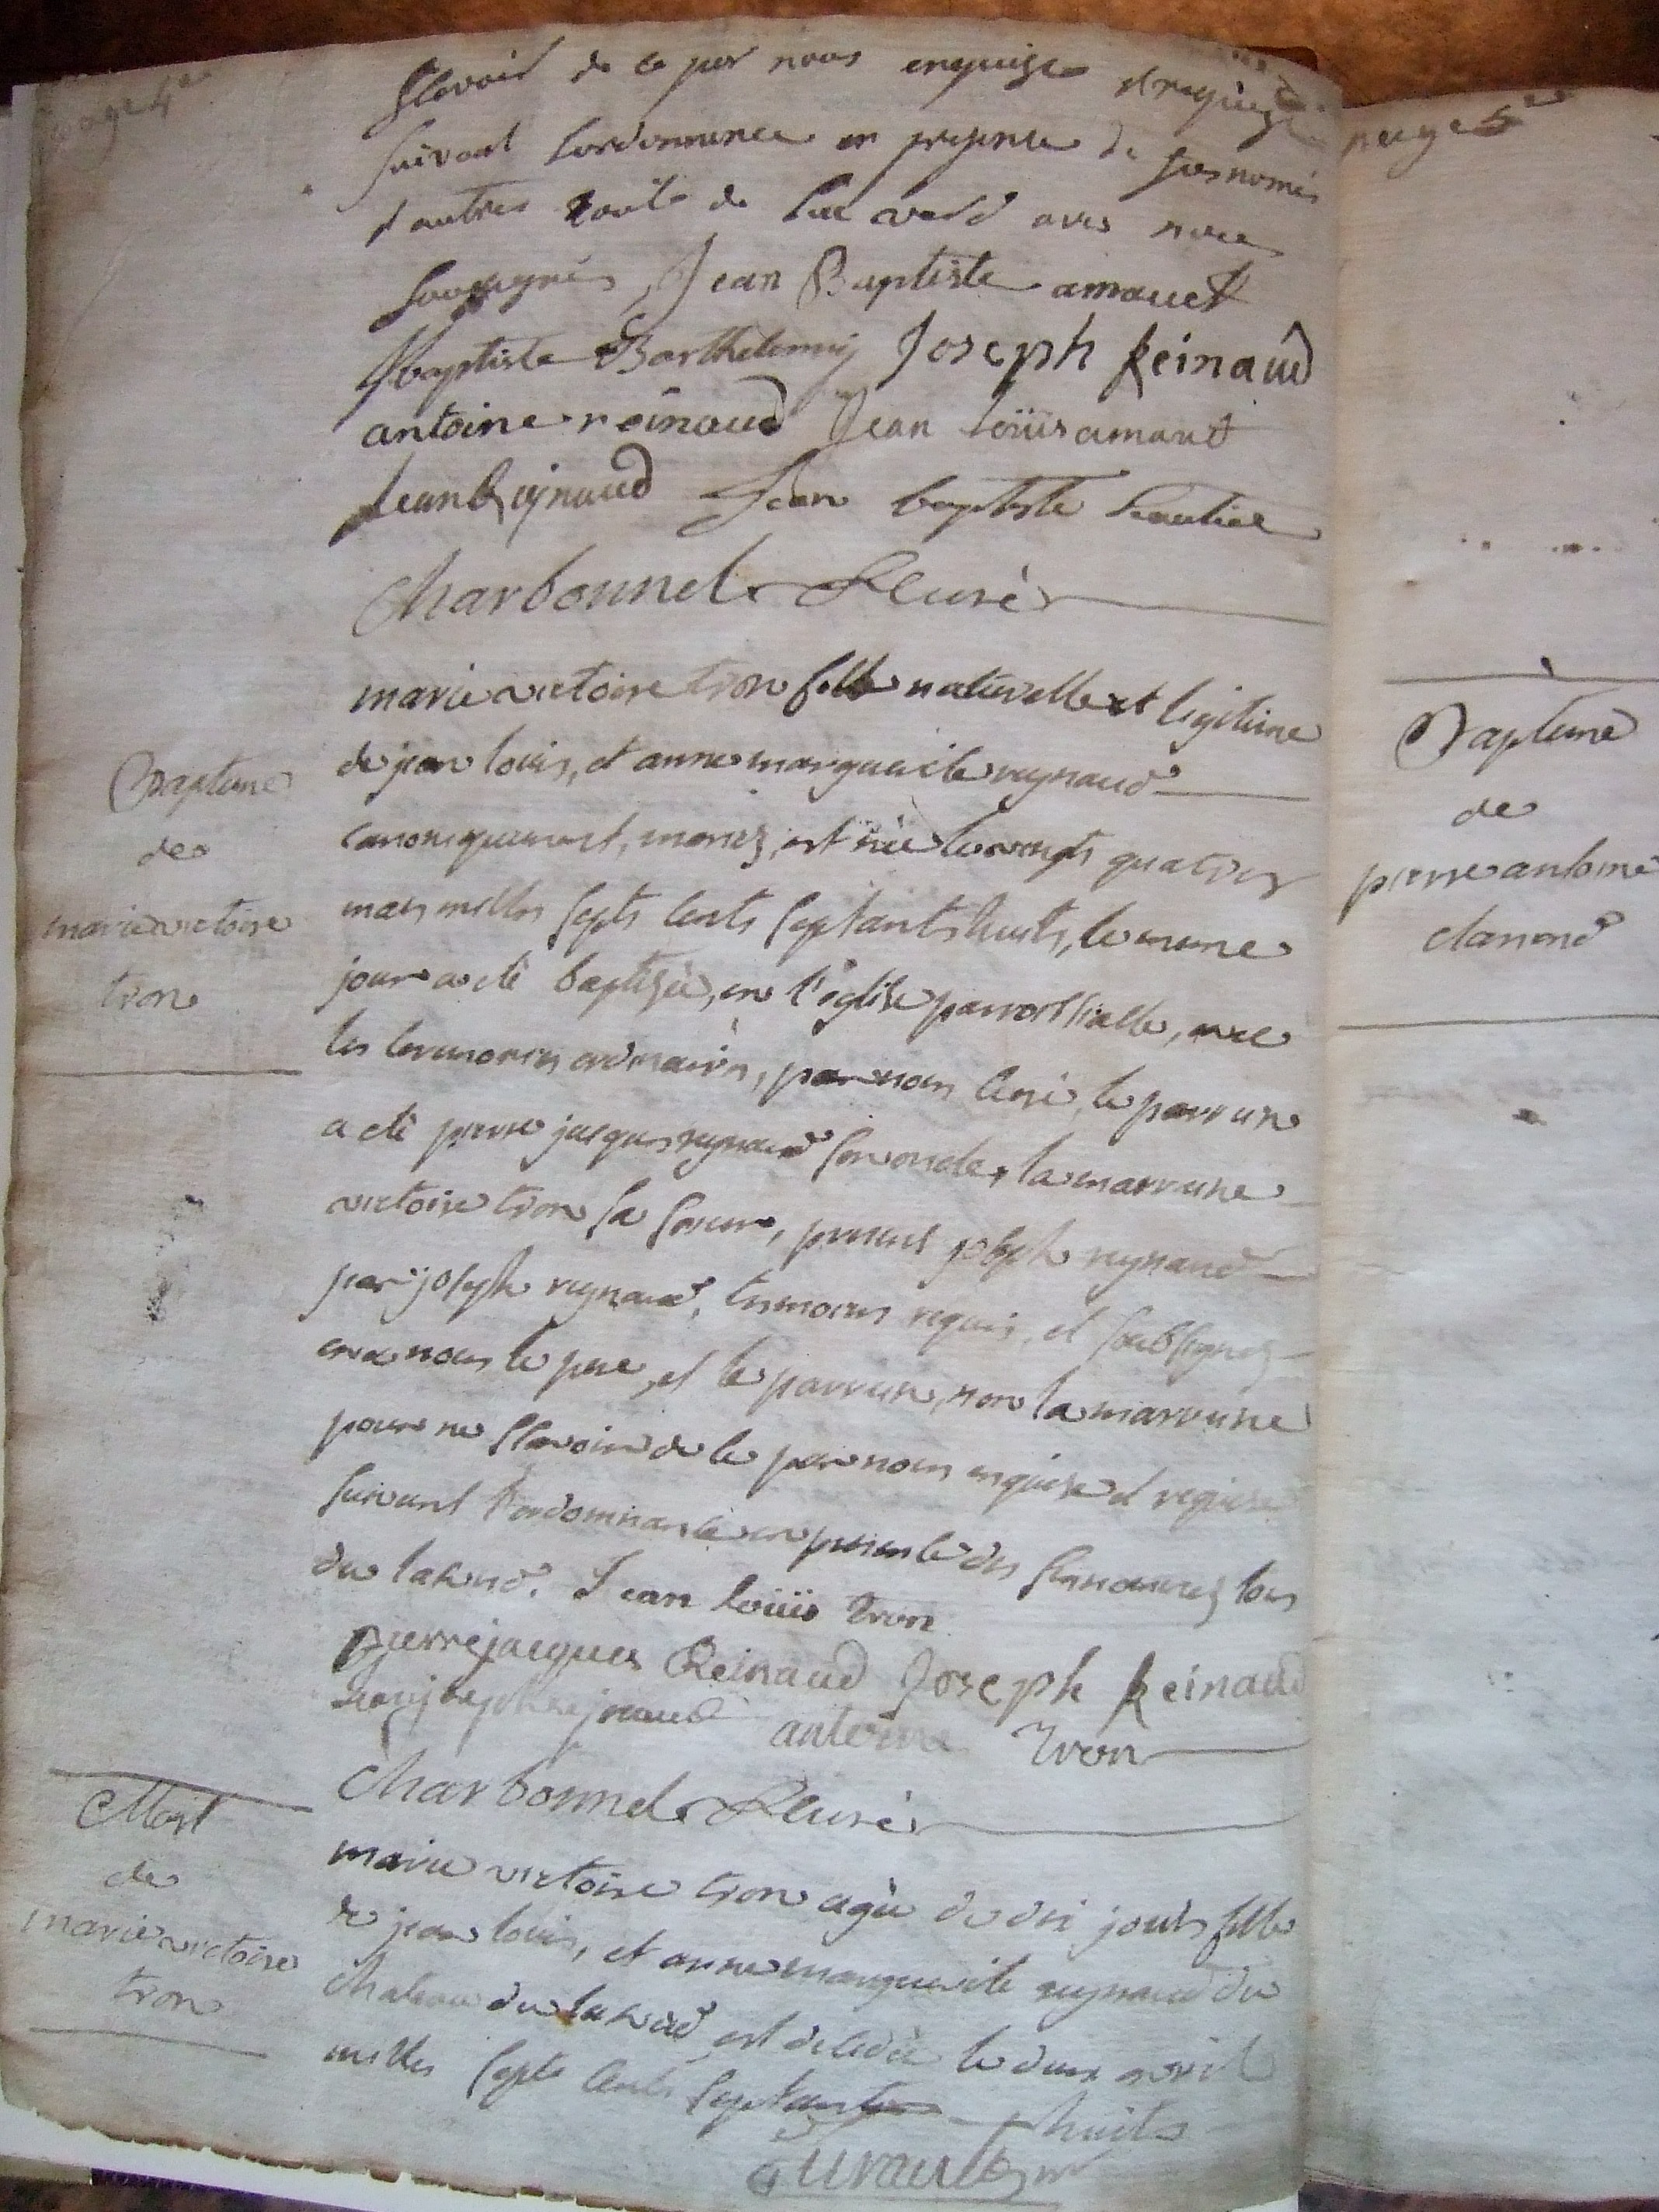 page 4e
Scavoir de ce par nous enquise et requise
suivant l'ordonnance en presence de susnomés
d'autres touts de avec nous
soussignés Jean Baptiste arnaud
Jbaptiste Barthelemy Joseph Reinaud
antoine reinaud Jean loüis arnaud
Jean Reynaud Jean baptiste
Charbonnel Curé
marie victoire tron fille naturelle et legitime
de jean louis, et anne marguerite reynaud
canoniquement, mariez, est née le vingts quatres
mars milles septs cents septants huits, le meme
jour a eté baptisée, en l'église parroissialle, avec
les ceremonies ordinaires, par nous curé, le parrain
a eté pierre jacques reynaud son oncle, la marraine
victoire tron sa soeur, presents joseph reynaud
par joseph reynaud, temoins requis, et soubsignez
avec nous le pere, et le parrain, non la marraine
pour ne scavoir de ce par nous enquise et requise
suivant l'ordonnance en presence des susnommez tous
du Jean loüis tron
pierre jacques Reinaud Joseph Reinaud
antoine tron
Charbonnel Curé
marie victoire tron agée de dix jours fille
de jean louis, et anne marguerite reynaud du
est decedée le deux avril
milles septs cents septants huits
Bapteme
de
marie victoire
tron
Mort
de
marie victoire
tron
page 5e
Bapteme
de
pierre antoine